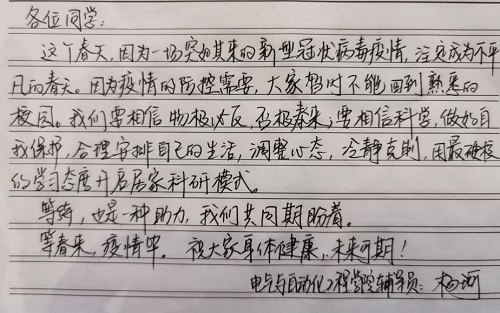 各位同学:
这个春天,因为一场突如其来的新型冠状病毒疫情,注定成为不平
凡的春天。因为疫情的防控需要,大家暂时不能回到熟悉的
校园。我们要相信物极必反,否极泰来;要相信科学,做好自
我保护,合理安排自己的生活,调整心态,冷静克制,用最硬核
的学习态度开启居家科研模式。
等待,也是一种助力,我们共同期盼着。
等春来,疫情毕。祝大家身体健康,未来可期!
电气与自动化工程学院辅导员:杨